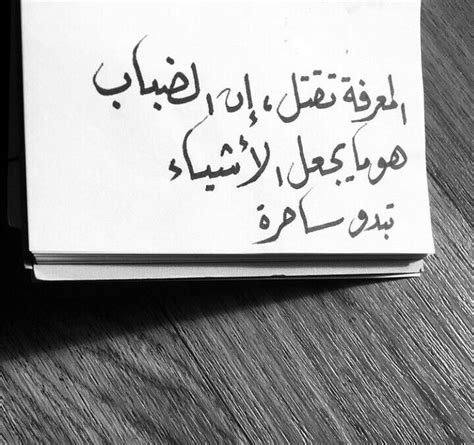 المعرفة تقتل، إن الضباب
هو ما يجعل الأشياء
تبدو ساحرة